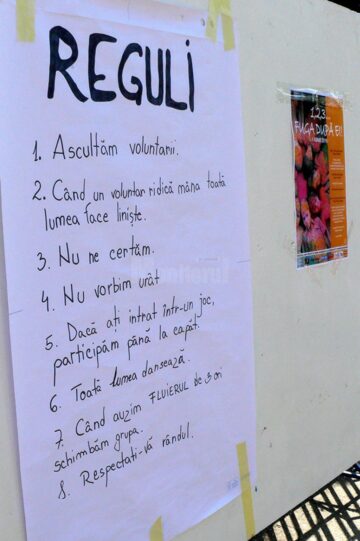 REGULI
1. Ascultăm voluntarii.
2. Când un voluntar ridică mâna toată
lumea face liniște.
3. Nu ne certăm.
4. Nu vorbim urât
5. Dacă ați intrat într-un joc,
participăm până la capăt.
6. Toată lumea dansează.
7. Când auzim FLUIERUL de 3 ori
schimbăm grupa.
8. Respectați-vă rândul.
1,2,3...
FUGA DUPĂ EI!